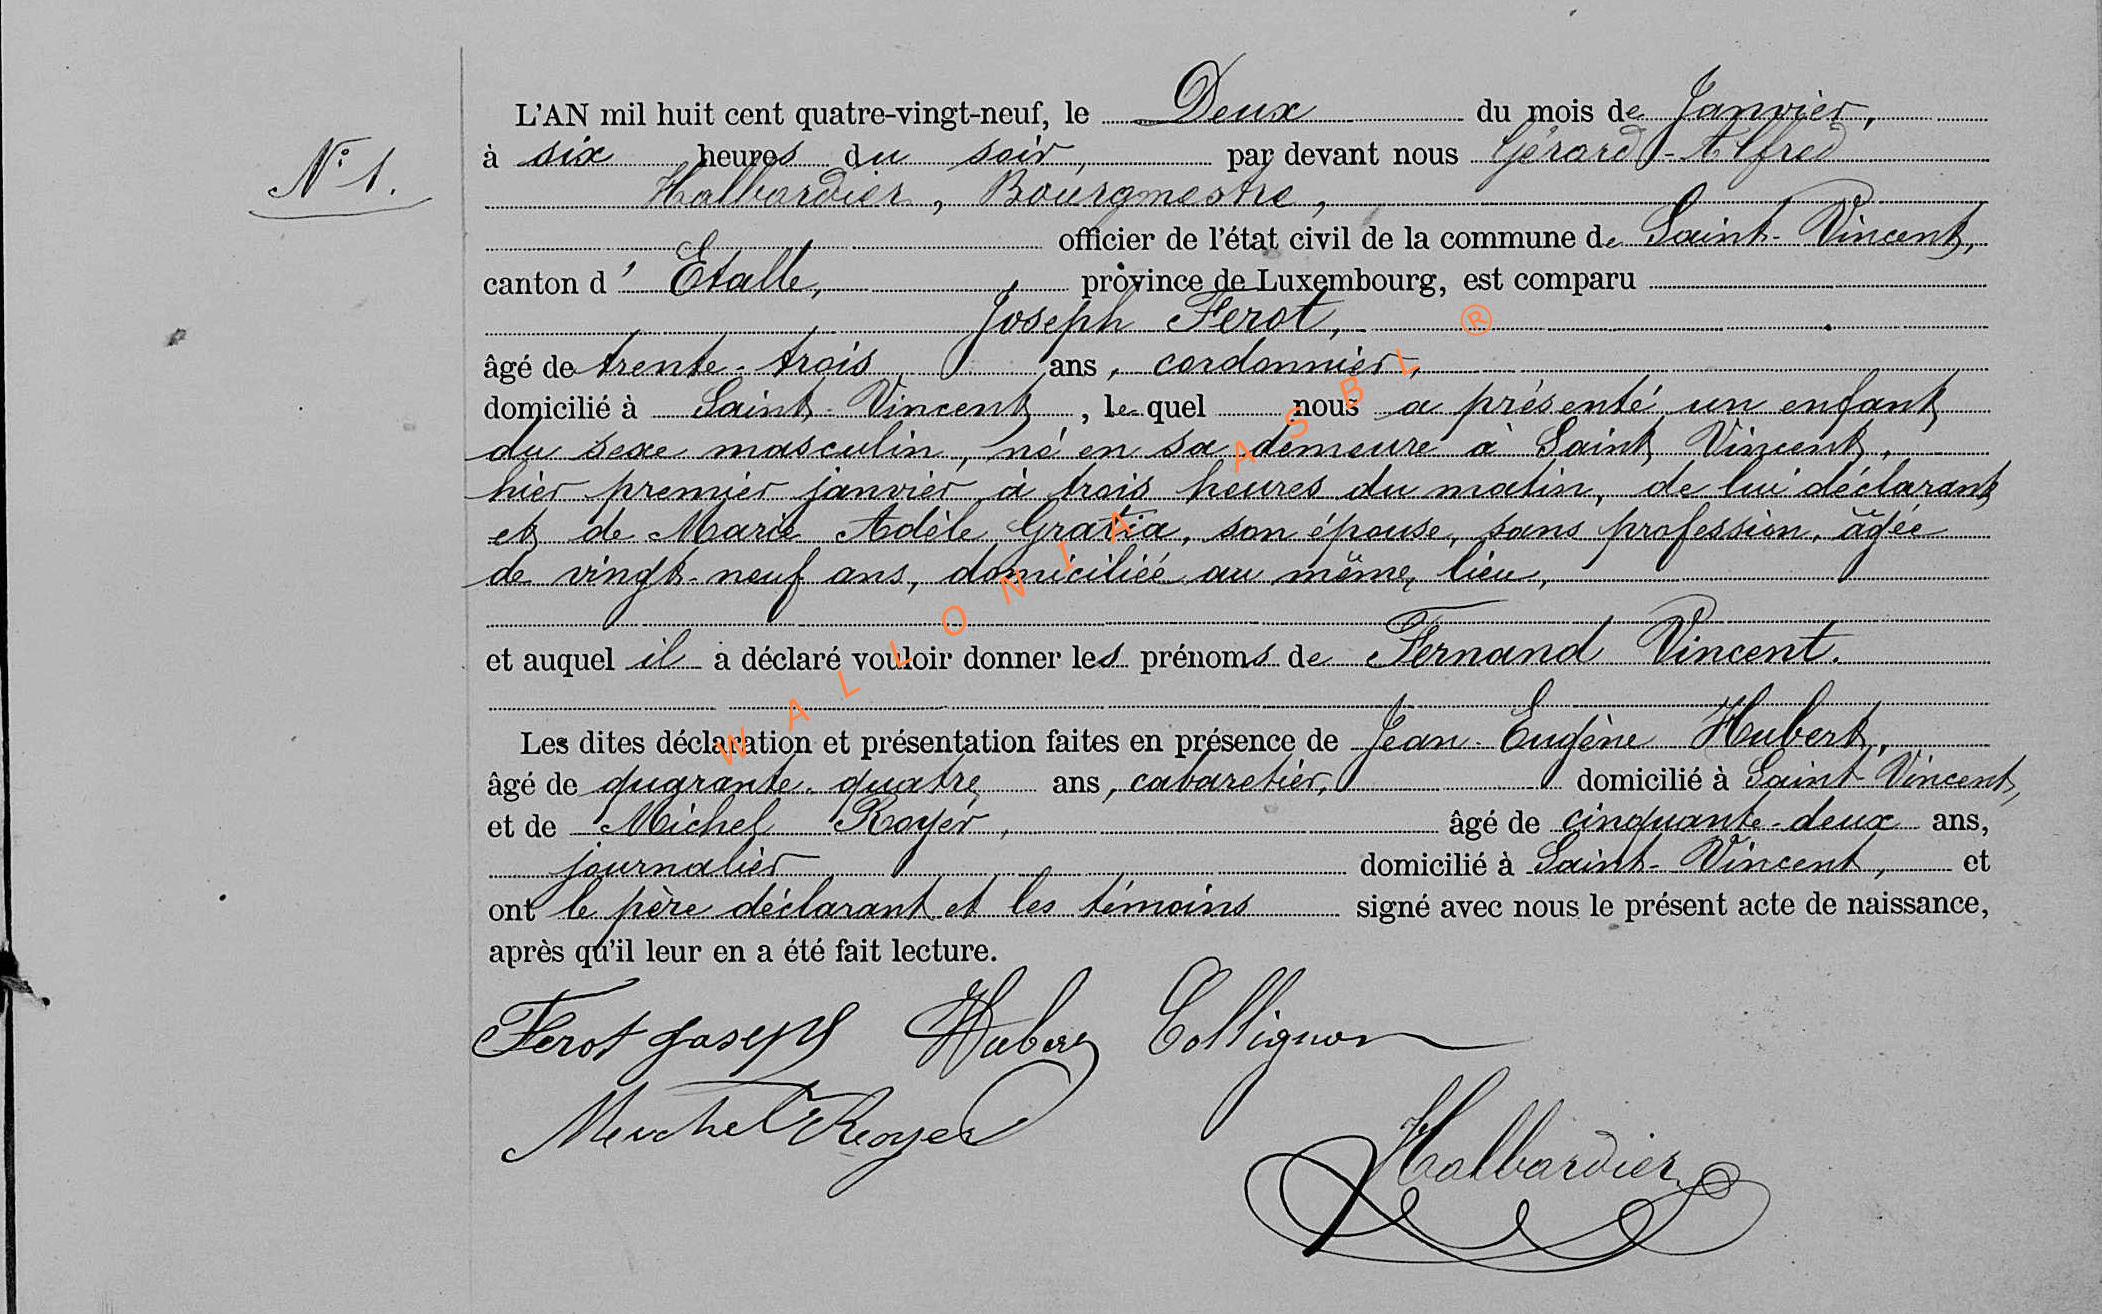 N° 1.
L'AN mil huit cent quatre-vingt-neuf, le Deux du mois de Janvier,
à six heures du soir, par devant nous Gérard-Alfred
Halbardier, Bourgmestre,
officier de l'état civil de la commune de Saint-Vincent,
canton d'Etalle, province de Luxembourg, est comparu
Joseph Ferot,
âgé de trente-trois ans, cordonnier,
domicilié à Saint-Vincent, lequel nous a présenté un enfant
du sexe masculin, né en sa demeure à Saint Vincent,
hier premier janvier à trois heures du matin, de lui déclarant
et de Marie Adèle Gratia, son épouse, sans profession, âgée
de vingt-neuf ans, domiciliée au même lieu,
et auquel il a déclaré vouloir donner les prénoms de Fernand Vincent.
Les dites déclaration et présentation faites en présence de Jean-Eugène Hubert,
âgé de quarante-quatre ans, cabaretier, domicilié à Saint-Vincent,
et de Michel Royer, âgé de cinquante-deux ans,
journalier domicilié à Saint-Vincent, et
ont le père déclarant et les témoins signé avec nous le présent acte de naissance,
après qu'il leur en a été fait lecture.
Ferot Joseph Hubert Collignon
Michel Royer
Halbardier
WALLONIA ASBL ®